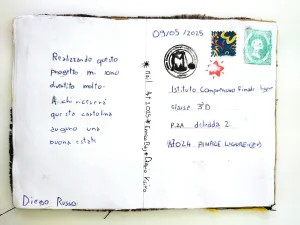 09/05/2025
Realizzando questo
progetto mi sono
divertito molto.
A chi riceverà
questa cartolina
auguro una
buona estate
Diego Russo
Mail Art 2025
Istituto Comprensivo Finale Ligure
classe 3°D
P.ZA 2
FINALE LIGURE (SV)